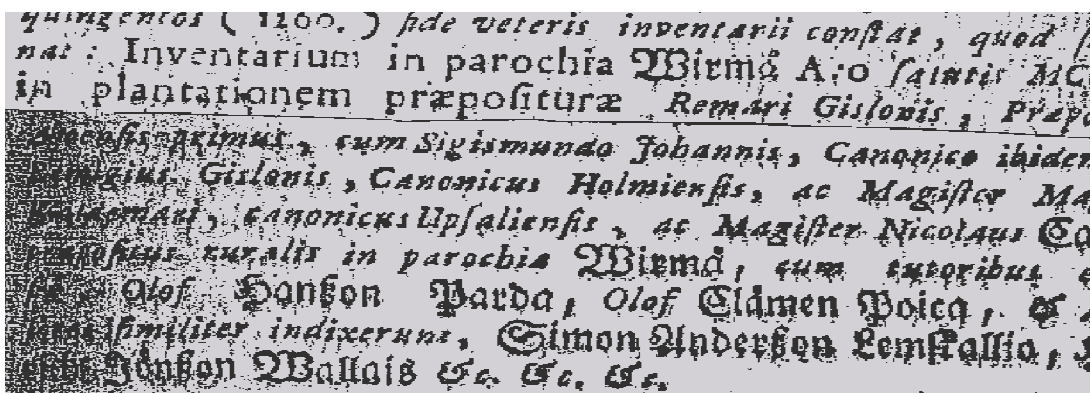 quingentos ( 1200. ) fide veteris inventarii conſtat, quod
nat: Inventarium in parochia Wirmå A:o ſalutis
in plantationem præpoſituræ Remari Giſlonis, Præp
primus, cum Sigismundo Johannis, Canonico ibidem
Remigius Giſlonis, Canonicus Holmienſis, ac Magiſter
canonicus Upſalienſis, ac Magiſter Nicolaus
ruralis in parochia Wirmå, cum tutoribus
Olof Hanßon Parda, Olof Clåmen Poica, &
ſimiliter indixerunt, Simon Anderßon Lemſkallia,
Jönßon Wallais &c. &c. &c.